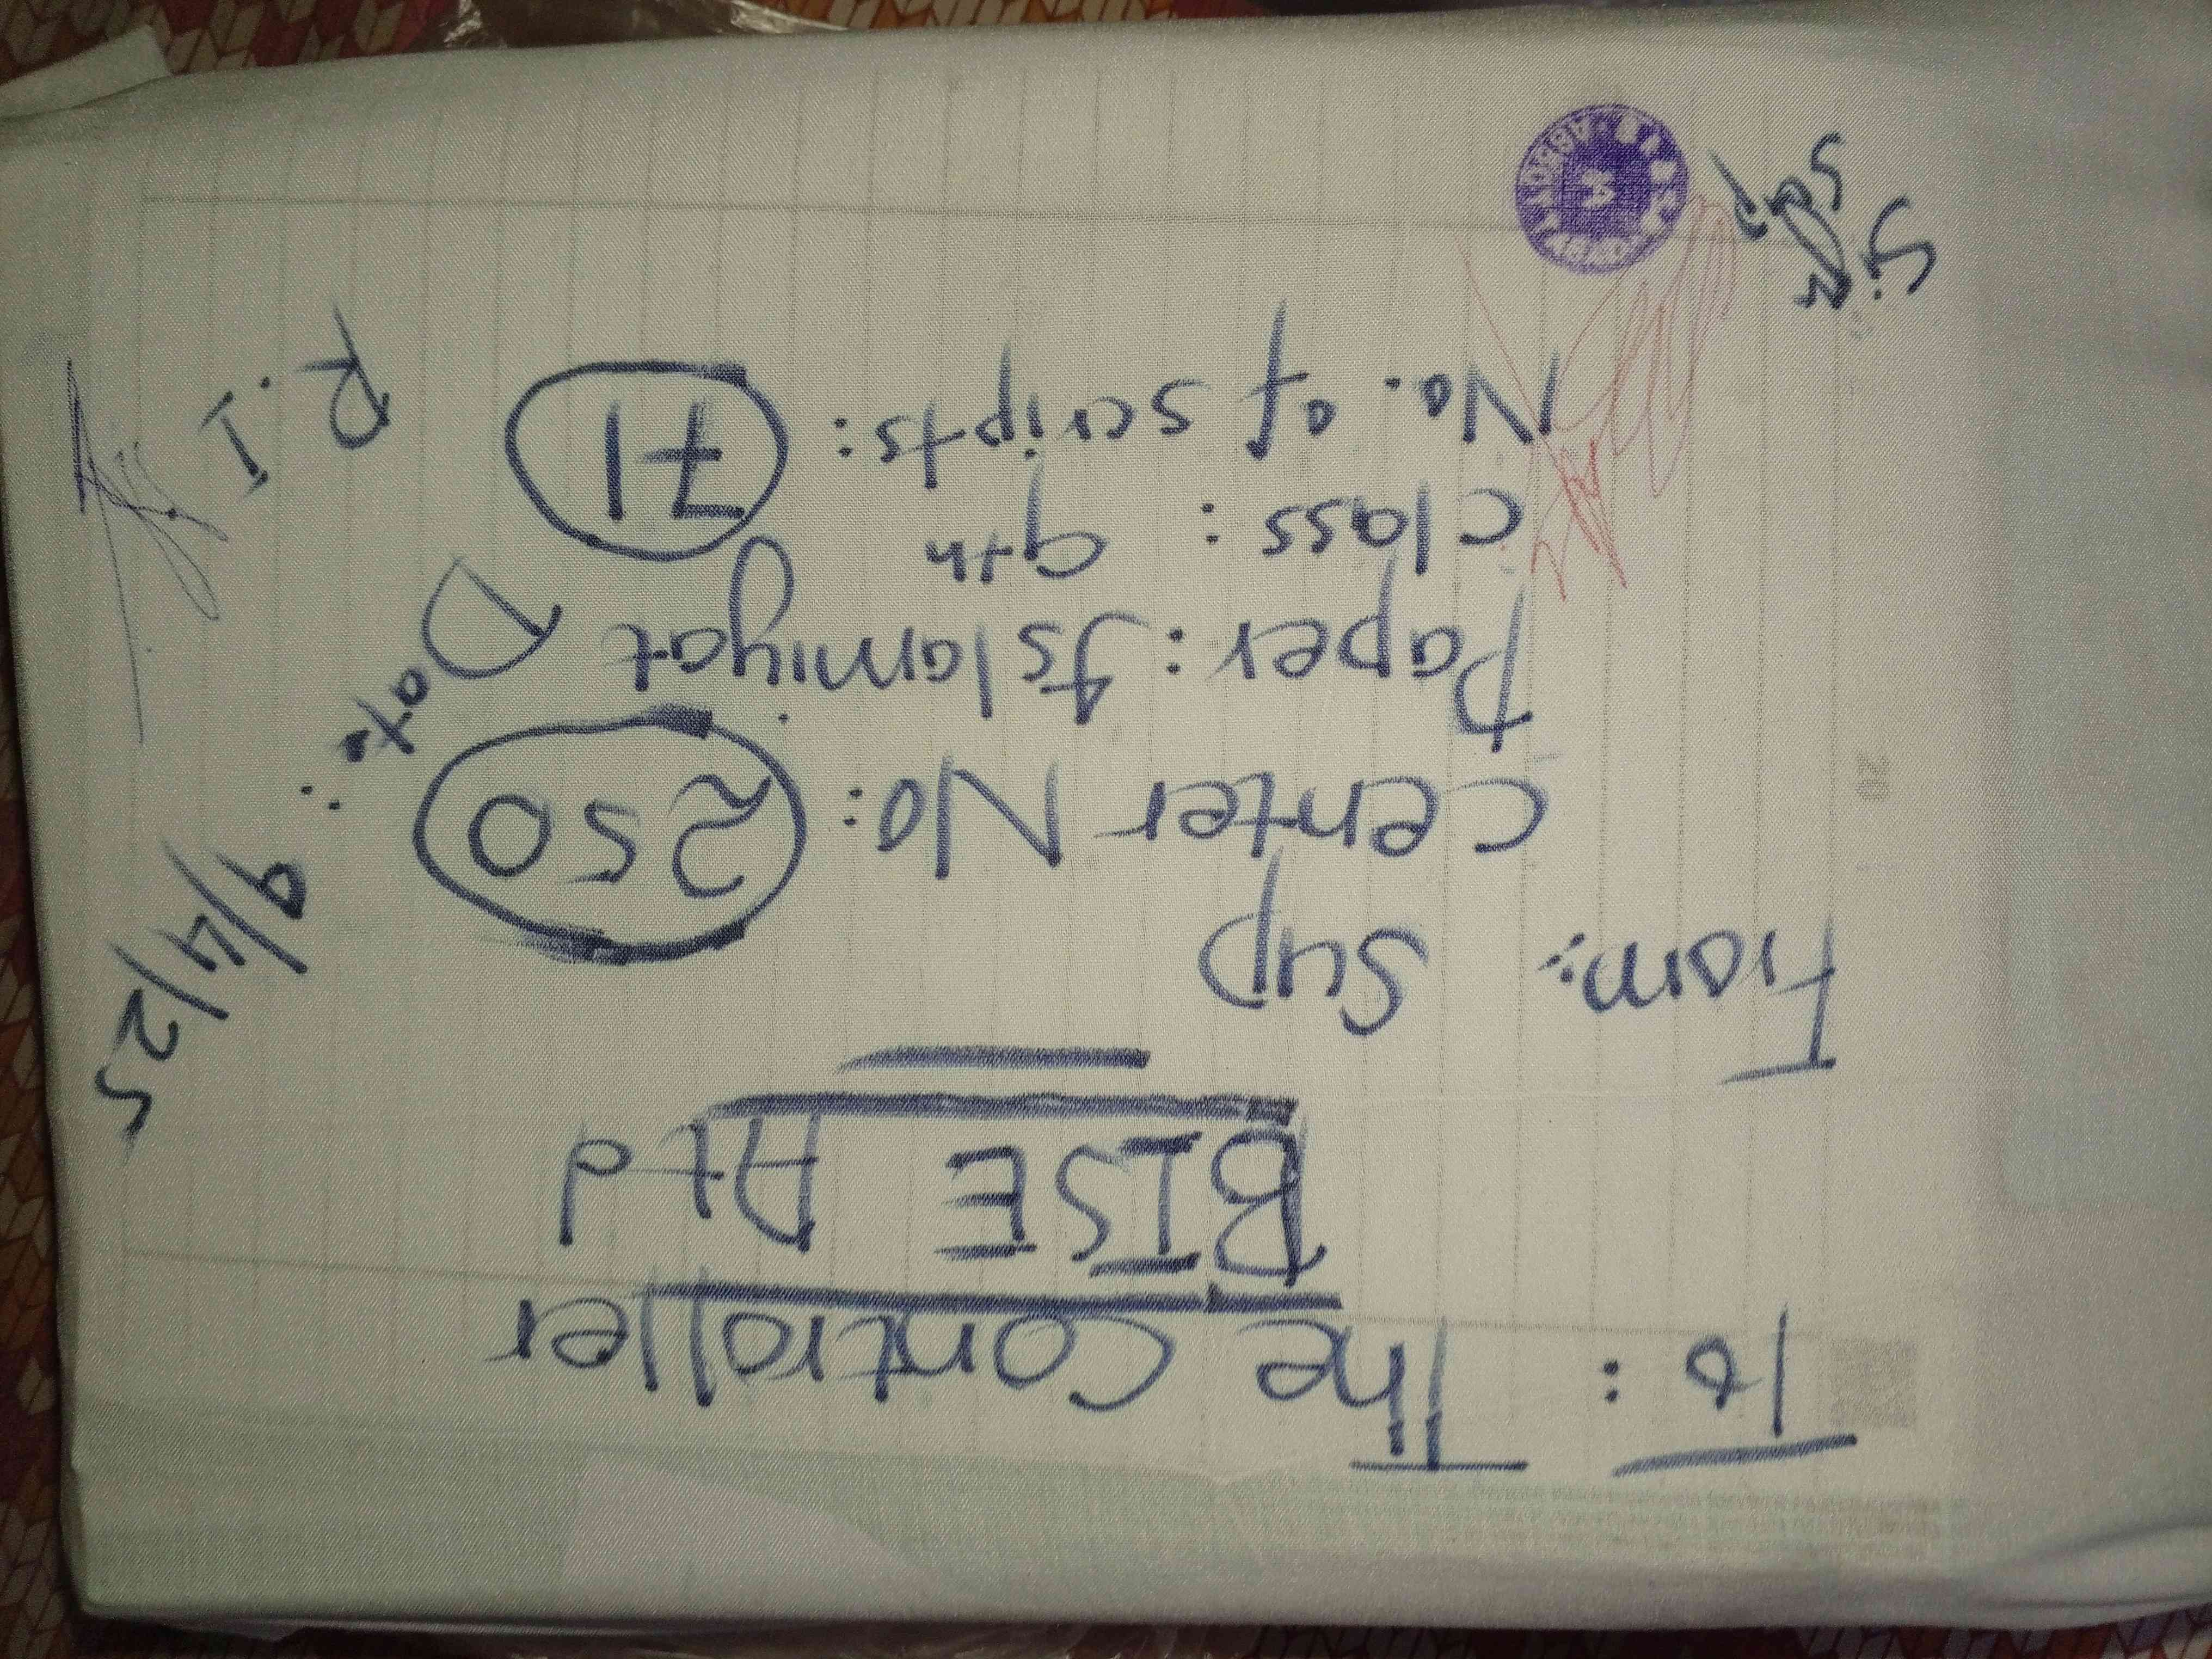 To: The Controller
BISE Atd
From: Sup
Center No: 250
Paper: Islamiyat
Class: 9th
No. of scripts: 71
Date: 9/4/25
R.I
Sig
Sup
20